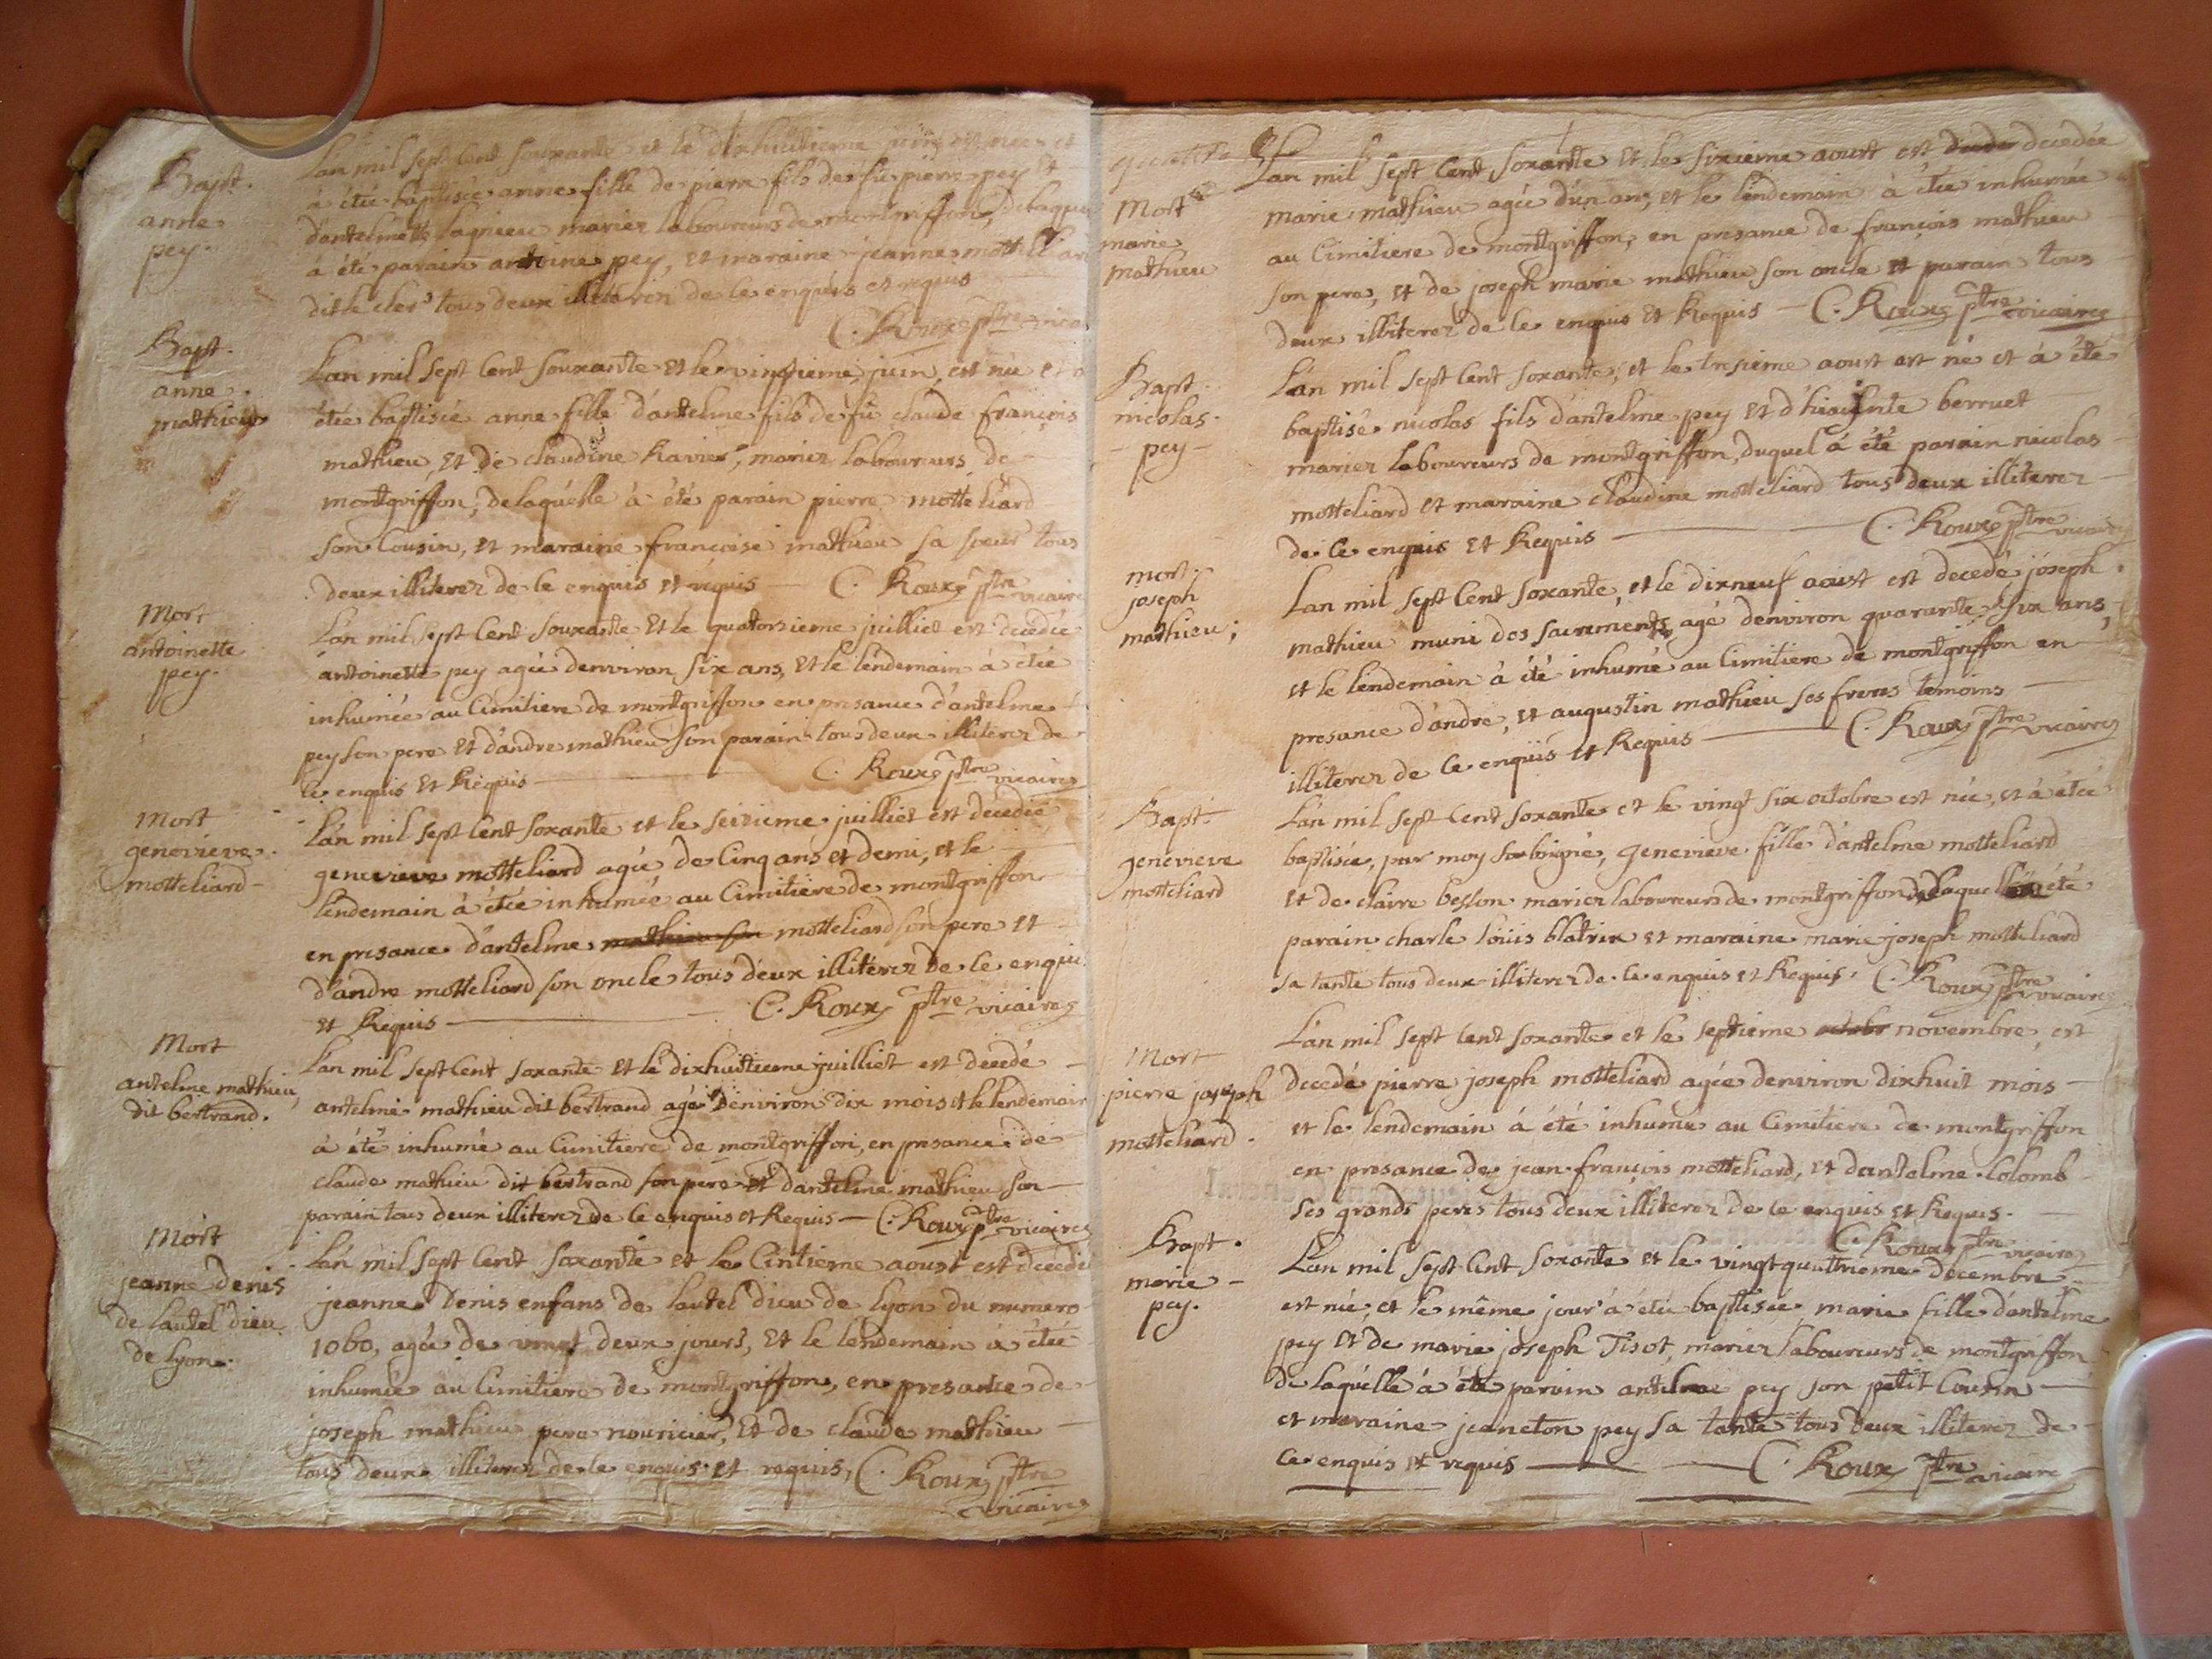 Bapt.
anne
pey.
Lan mil sept cent souxante et le dixhuitieme juin est nee et
à étée baptisée anne fille de pierre fils de fû pierre pey et
d'antelmette lagnieu mariez laboureurs de montgriffon, de laquel
à été parain antoine pey, et maraine jeanne mottelliar
dit le cler tous deux illiterez de ce enquis et requis
C. Roux ptre vica
Bapt.
anne
mathieu
Lan mil sept cent souxante et le vingtieme juin, est née et a
étée baptisée anne fille d'antelme fils de fû claude françois
mathieu, et de claudine Ravier, mariez laboureurs de
montgriffon, de laquelle à été parain pierre motteliard
son cousin, et maraine françoise mathieu sa soeur tous
deux illiterez de ce enquis et requis — C. Roux ptre vicaire
Mort
antoinette
pey.
Lan mil sept cent souxante et le quatorzieme juilliet est decedée
antoinette pey agée denviron six ans, et le lendemain à étée
inhumée au cimitiere de montgriffon en presance d'antelme
pey son pere et d'andre mathieu son parain tous deux illiterez de
ce enquis et Requis — C. Roux ptre vicaire
Mort
genevieve
motteliard
Lan mil sept cent soxante et le seizieme juilliet est décedée
genevieve motteliard agée de cinq ans et demi, et le
lendemain à étée inhumée au cimitiere de montgriffon
en presance d'antelme mathieu son motteliard son pere et
d'andre motteliard son oncle tous deux illiterez de ce enqui
et Requis — C. Roux ptre vicaire
Mort
antelme mathieu
dit bertrand.
Lan mil sept cent soxante et le dixhuitieme juilliet est decedé
antelme mathieu dit bertrand agé denviron dix mois et le lendemain
à été inhumé au cimitiere de montgriffon, en presance de
claude mathieu dit bertrand son pere et d'antelme mathieu son
parain tous deux illiterez de ce enquis et Requis — C. Roux ptre vicaire
Mort
jeanne denis
de lautel dieu
de lyon.
Lan mil sept cent soxante et le cintieme aoust est decedée
jeanne denis enfans de lautel dieu de lyon du numero
1060, agée de vingt deux jours, et le lendemain à étée
inhumée au cimitiere de montgriffon, en presance de
joseph mathieu pere nouricier, et de claude mathieu
tous deux illiterez de ce enquis et requis, C. Roux ptre
vicaire
Mort
marie
mathieu
Lan mil sept cent soxante et le sixieme aoust est decedée decedée
marie mathieu agée d'un an, et le lendemain à étée inhumée
au cimitiere de montgriffon, en presance de françois mathieu
son pere, et de joseph marie mathieu son oncle et parain tous
deux illiterez de ce enquis et Requis — C. Roux ptre vicaire
Bapt.
nicolas
pey
Lan mil sept cent soxante, et le tresieme aoust est né et à été
baptisé nicolas fils d'antelme pey et d'hiacinte berruet
mariez laboureurs de montgriffon, duquel à été parain nicolas
motteliard et maraine claudine motteliard tous deux illiterez
de ce enquis et Requis — C. Roux ptre vicaire
mort.
joseph
mathieu;
Lan mil sept cent soxante, et le dixneuf aoust est decedé joseph
mathieu muni des sacrements, agé denviron quarante six ans,
et le lendemain à été inhumé au cimitiere de montgriffon en
presance d'andre, et augustin mathieu ses freres temoins
illiterez de ce enquis et Requis — C. Roux ptre vicaire
Bapt.
genevieve
motteliard
Lan mil sept cent soxante et le vingt six octobre est née, et à étée
baptisée, par moy soubsigné, genevieve fille d'antelme motteliard
et de claire beston mariez laboureurs de montgriffon de laquelle à été
parain charle loüis blatrix et maraine marie joseph motteliard
sa tante tous deux illiterez de ce enquis et Requis. C. Roux ptre vicaire
Mort
pierre joseph
motteliard.
Lan mil sept cent soxante et le septieme octobr novembre, est
decedé pierre joseph motteliard agée denviron dixhuit mois
et le lendemain à été inhumé au cimitiere de montgriffon
en presance de jean françois motteliard, et d'antelme colomb
ses grands peres tous deux illiterez de ce enquis et Requis.
C. Roux ptre vicaire
Bapt.
marie
pey.
Lan mil sept cent soxante et le vingtquatrieme decembre
est née, et le même jour à étée baptisée marie fille d'antelme
pey et de marie joseph Tisot, mariez laboureurs de montgriffon
de laquelle à été parain antelme pey son petit cousin
et maraine jeaneton pey sa tante tous deux illiterez de
ce enquis et requis — C. Roux ptre vicaire